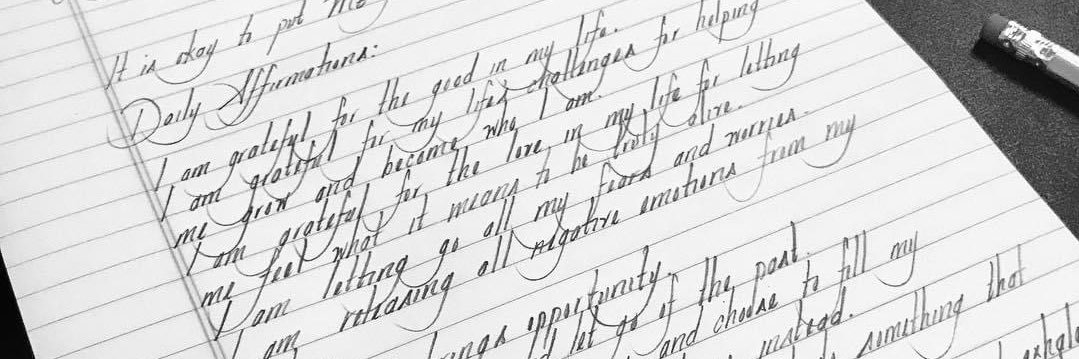 It is okay to put me
Daily Affirmations:
I am grateful for the good in my life.
I am grateful for my life's challenges for helping
me grow and become who I am.
I am grateful for the love in my life for letting
me feel what it means to be truly alive.
I am letting go all my fears and worries.
I am releasing all negative emotions from my
opportunity.
let go of the past.
and choose to fill my
instead.
something that